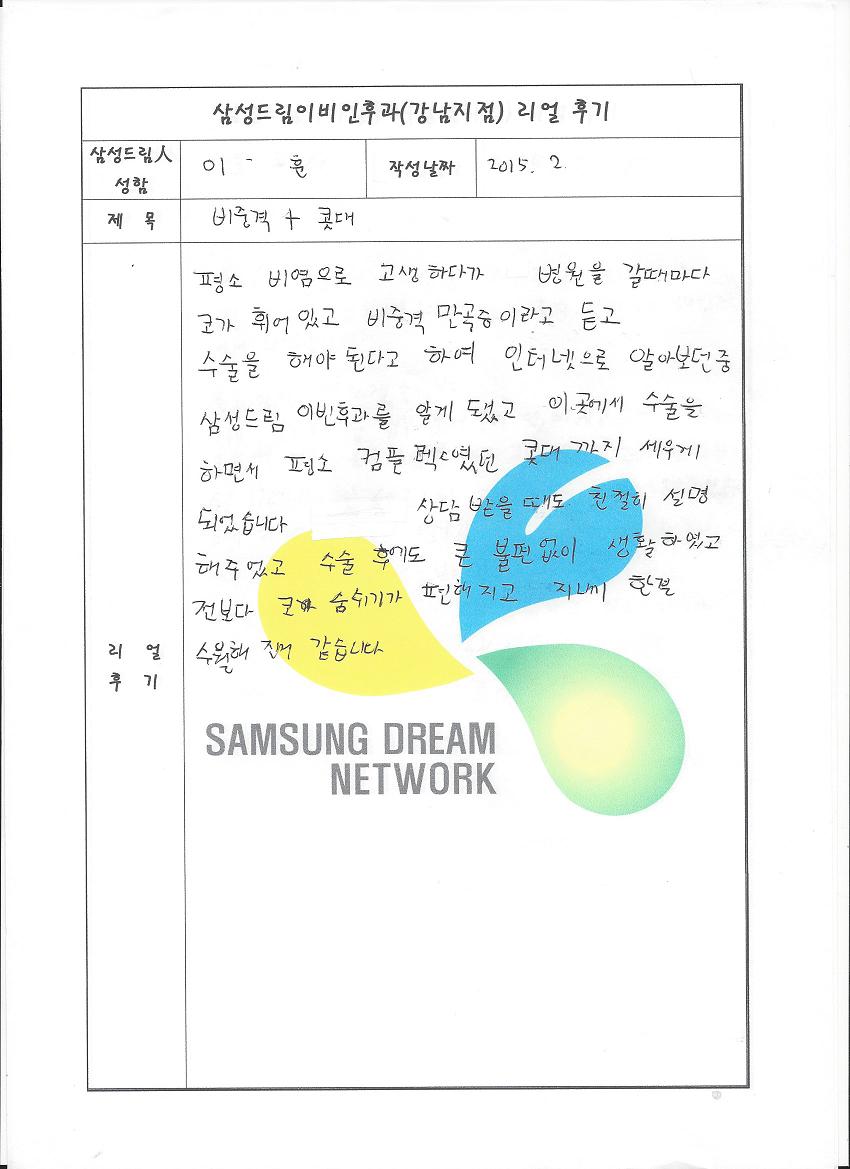 삼성드림이비인후과(강남지점) 리얼 후기
삼성드림人 성함
이 - 훈
작성날짜
2015. 2.
제 목
비중격 + 콧대
리 얼 후 기
평소 비염으로 고생하다가 병원을 갈때마다
코가 휘어 있고 비중격 만곡증이라고 듣고
수술을 해야 된다고 하여 인터넷으로 알아보던중
삼성드림 이빈후과를 알게 됐고 이곳에서 수술을
하면서 평소 컴플렉스였던 콧대까지 세우게
되었습니다 상담 받을 때도 친절히 설명
해주었고 수술 후에도 큰 불편없이 생활하였고
전보다 숨쉬기가 편해지고 지내기 한결
수월해 진거 같습니다
SAMSUNG DREAM
NETWORK